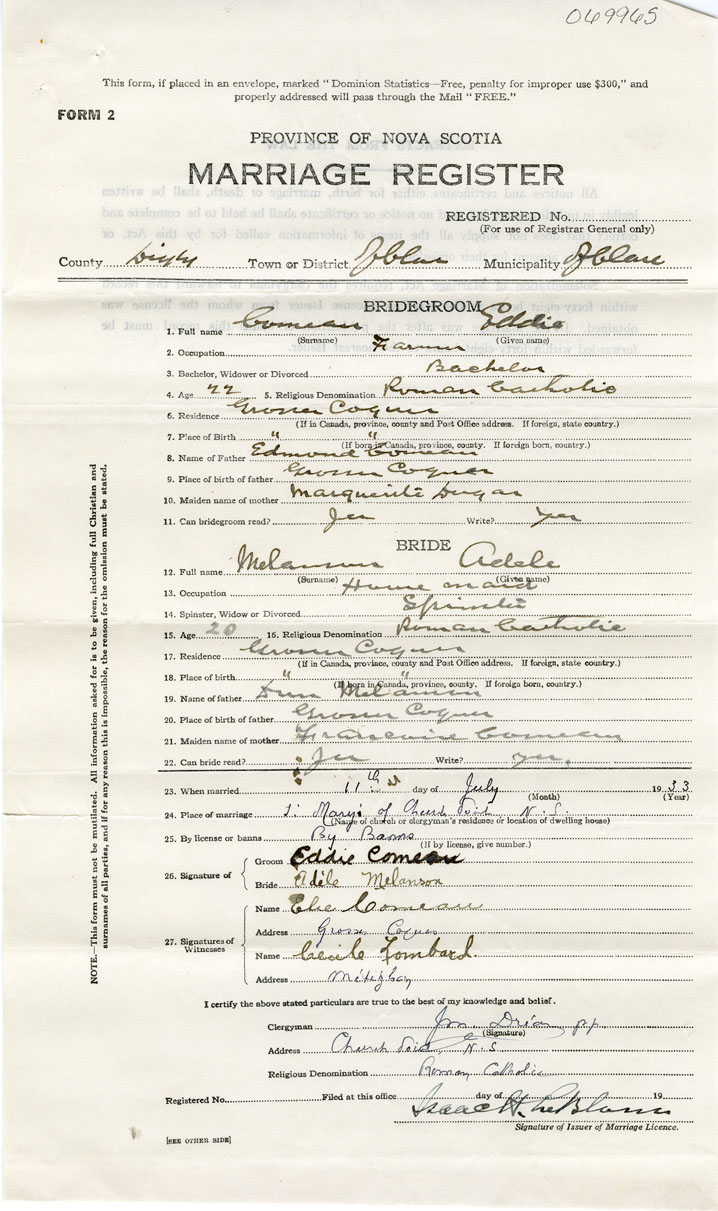 069965
This form, if placed in an envelope, marked "Dominion Statistics—Free, penalty for improper use $300," and
properly addressed will pass through the Mail "FREE."
FORM 2
PROVINCE OF NOVA SCOTIA
MARRIAGE REGISTER
REGISTERED No.
(For use of Registrar General only)
County Digby Town or District of Clare Municipality of Clare
BRIDEGROOM
1. Full name Comeau Eddie
(Surname) (Given name)
2. Occupation Farmer
3. Bachelor, Widower or Divorced Bachelor
4. Age 22 5. Religious Denomination Roman Catholic
6. Residence Grosses Coques
(If in Canada, province, county and Post Office address. If foreign, state country.)
7. Place of Birth " "
(If born in Canada, province, county. If foreign born, country.)
8. Name of Father Edmond Comeau
9. Place of birth of father Grosses Coques
10. Maiden name of mother Marguerite Dugas
11. Can bridegroom read? Yes Write? Yes
BRIDE
12. Full name Melanson Adele
(Surname) (Given name)
13. Occupation House maid
14. Spinster, Widow or Divorced Spinster
15. Age 20 16. Religious Denomination Roman Catholic
17. Residence Grosses Coques
(If in Canada, province, county and Post Office address. If foreign, state country.)
18. Place of birth " "
(If born in Canada, province, county. If foreign born, country.)
19. Name of father Melanson
20. Place of birth of father Grosses Coques
21. Maiden name of mother Francoise Comeau
22. Can bride read? Yes Write? yes.
23. When married 11th day of July 1933
(Month) (Year)
24. Place of marriage St Mary's of Church Point N.S.
(Name of church or clergyman's residence or location of dwelling house)
25. By license or banns By Banns
(If by license, give number.)
26. Signature of
Groom Eddie Comeau
Bride Adèle Melanson
27. Signatures of Witnesses
Name Elie Comeau
Address Grosses Coques
Name Cecile Lombard.
Address Meteghan
I certify the above stated particulars are true to the best of my knowledge and belief.
Clergyman p.p.
(Signature)
Address Church Point, N.S.
Religious Denomination Roman Catholic
Registered No. Filed at this office day of 19
Isaac H. LeBlanc
Signature of Issuer of Marriage Licence.
[SEE OTHER SIDE]
NOTE.—This form must not be mutilated. All information asked for is to be given, including full Christian and
surnames of all parties, and if for any reason this is impossible, the reason for the omission must be stated.